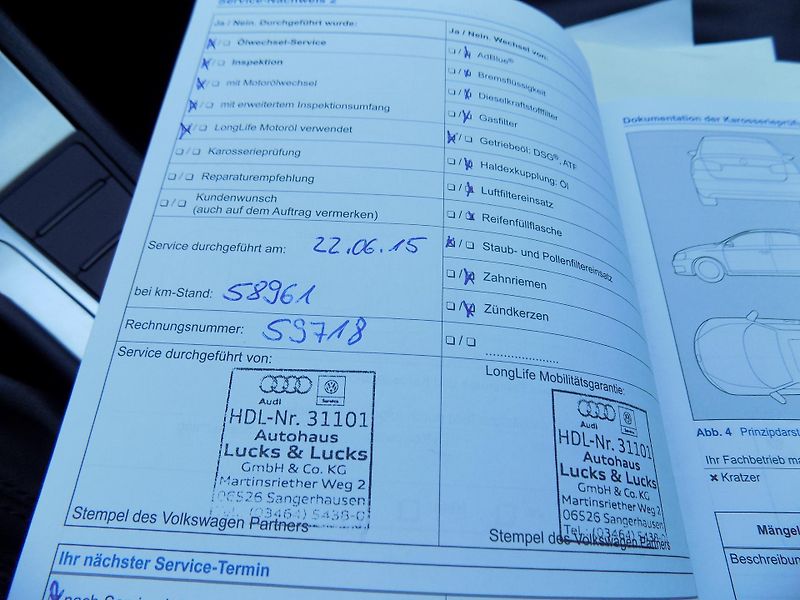 Service-Nachweis 2
Ja / Nein. Durchgeführt wurde:
Ölwechsel-Service
Inspektion
mit Motorölwechsel
mit erweitertem Inspektionsumfang
LongLife Motoröl verwendet
Karosserieprüfung
Reparaturempfehlung
Kundenwunsch
(auch auf dem Auftrag vermerken)
Service durchgeführt am: 22.06.15
bei km-Stand: 58961
Rechnungsnummer: 59718
Service durchgeführt von:
Audi
Service
HDL-Nr. 31101
Autohaus
Lucks & Lucks
GmbH & Co. KG
Martinsriether Weg 2
06526 Sangerhausen
Tel.: (03464) 5438-0
Stempel des Volkswagen Partners
Ja / Nein. Wechsel von:
AdBlue®
Bremsflüssigkeit
Dieselkraftstofffilter
Gasfilter
Getriebeöl: DSG®, ATF
Haldexkupplung: Öl
Luftfiltereinsatz
Reifenfüllflasche
Staub- und Pollenfiltereinsatz
Zahnriemen
Zündkerzen
LongLife Mobilitätsgarantie:
Audi
HDL-Nr. 31101
Autohaus
Lucks & Lucks
GmbH & Co. KG
Martinsriether Weg 2
06526 Sangerhausen
Tel.: (03464) 5438-0
Stempel des Volkswagen Partners
Ihr nächster Service-Termin
Dokumentation der Karosserieprüf
Abb. 4 Prinzipdarst
Ihr Fachbetrieb ma
× Kratzer
Mängel
Beschreibun